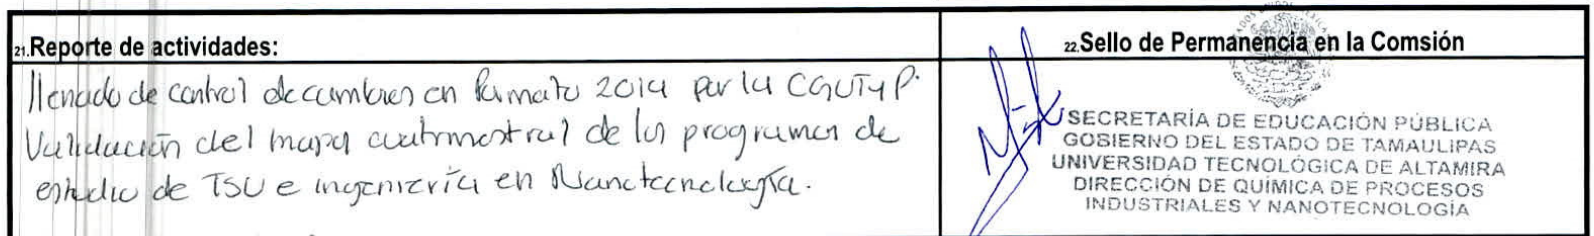 21.Reporte de actividades:
22.Sello de Permanencia en la Comsión
llenado de control de cambios en formato 2014 por la CGUTyP.
Validación del mapa cuatrimestral de los programas de
estudio de TSU e ingeniería en Nanotecnología.
SECRETARÍA DE EDUCACIÓN PÚBLICA
GOBIERNO DEL ESTADO DE TAMAULIPAS
UNIVERSIDAD TECNOLÓGICA DE ALTAMIRA
DIRECCIÓN DE QUÍMICA DE PROCESOS
INDUSTRIALES Y NANOTECNOLOGÍA